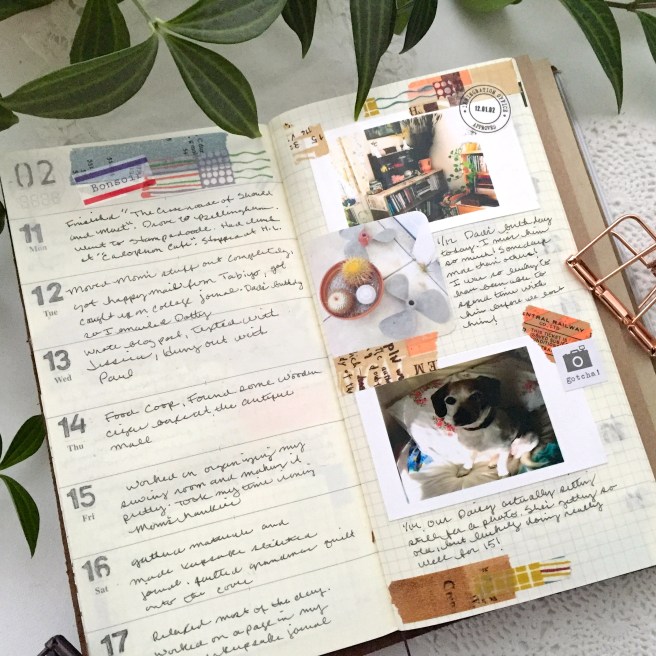 02
Bonsoir
11
Mon
Finished "The Crossname of Should
and Must". Drove to Bellingham.
Went to Stampadoodle. Had lunch
at Cafe". Stopped at H.L.
12
Tue
Moved Mom's stuff out completely.
got happy mail from Tabiyo, got
caught up on collage journal. Dad's bday
so I emailed Dotty
13
Wed
Wrote blog post, Texted with
Jessica, Hung out with
Paul
14
Thu
Food Coop, Found some wooden
cigar at the antique
mall
15
Fri
Worked on organizing my
sewing room and making it
pretty. Took my time
Mom's hankies
16
Sat
gathered materials and
made keepsake
journal. grandmas quilt
onto the cover
17
Relaxed most of the day.
Worked on a page in my
keepsake journal
IMMIGRATION OFFICE
12.01.02
APPROVED
1/12 Dad's birthday
today. I miss him
so much! Somedays
more than others!
I was so lucky to
have been able to
spend time with
him before we lost
him!
CENTRAL RAILWAY
gotcha!
our Daisy actually sitting
still for a photo. She's getting so
old, but luckily doing really
well for 15!